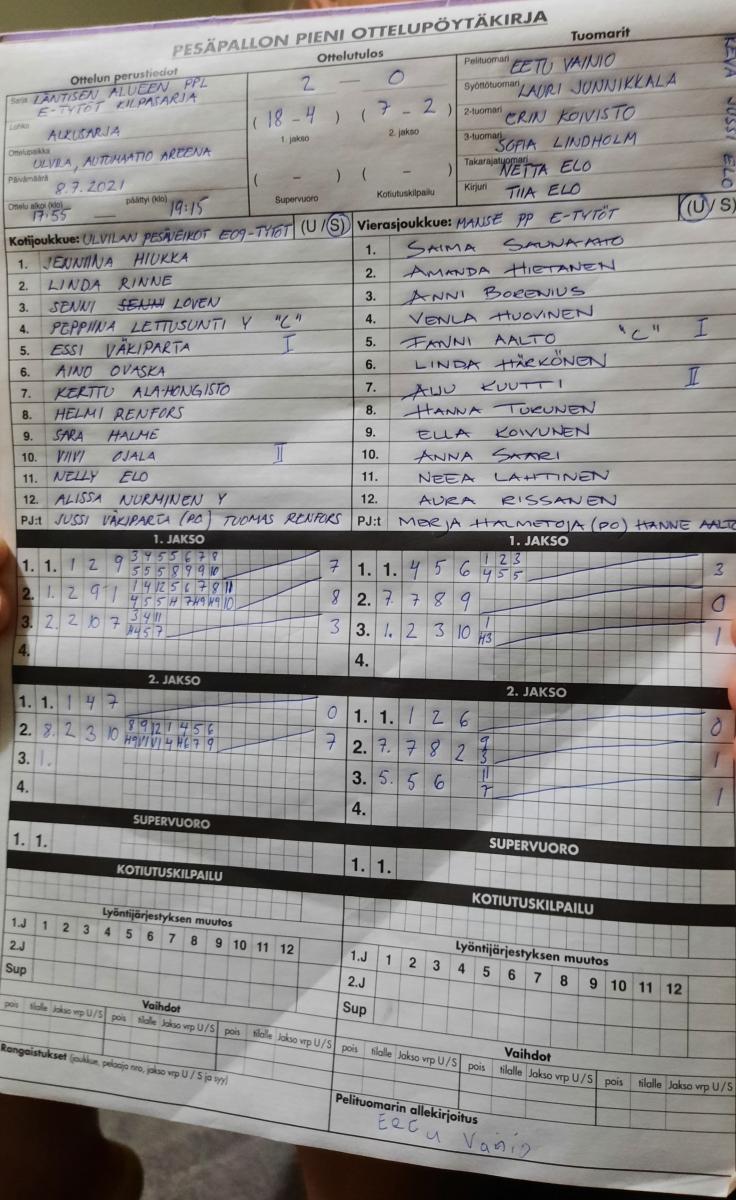 PESÄPALLON PIENI OTTELUPÖYTÄKIRJA
Ottelun perustiedot
Sarja LÄNTISEN ALUEEN PPL
E-TYTÖT KILPASARJA
Lohko ALKUSARJA
Ottelupaikka ULVILA, AUTOMAATIO AREENA
Päivämäärä 8.7.2021
Ottelu alkoi (klo) 17:55 päättyi (klo) 19:15
Ottelutulos
2 – 0
( 18 - 4 ) ( 7 - 2 )
1. jakso 2. jakso
( – ) ( – )
Supervuoro Kotiutuskilpailu
Tuomarit
Pelituomari EETU VAINIO
Syöttötuomari LAURI JUNNIKKALA
2-tuomari ERIN KOIVISTO
3-tuomari SOFIA LINDHOLM
Takarajatuomari NETTA ELO
Kirjuri TIIA ELO
JUSSI ELO
Kotijoukkue: ULVILAN PESÄVEIKOT E09-TYTÖT (U / S)
1. JENNIINA HIUKKA
2. LINDA RINNE
3. SENNI LOVEN
4. PEPPIINA LETTUSUNTI Y "C"
5. ESSI VÄKIPARTA I
6. AINO OVASKA
7. KERTTU ALA-HONGISTO
8. HELMI RENFORS
9. SARA HALME
10. VIIVI OJALA II
11. NELLY ELO
12. ALISSA NURMINEN Y
PJ:t JUSSI VÄKIPARTA (PO) TUOMAS RENFORS
Vierasjoukkue: MANSE PP E-TYTÖT (U / S)
1. SAIMA SAUNA-AHO
2. AMANDA HIETANEN
3. ANNI BORENIUS
4. VENLA HUOVINEN
5. FANNI AALTO "C" I
6. LINDA HÄRKÖNEN
7. AUU KUUTTI II
8. HANNA TURUNEN
9. ELLA KOIVUNEN
10. ANNA SAARI
11. NEEA LAHTINEN
12. AURA RISSANEN
PJ:t MERJA HALMETOJA (PO) HANNE AALTO
1. JAKSO
1. 1. 1 2 9 3 4 5 5 6 7 8 7
5 5 5 8 9 9 10
2. 1. 2 9 1 1 4 12 5 6 7 8 11 8
4 5 5 H 7 H9 H9 10
3. 2. 2 10 7 3 4 11 3
H4 5 7
4.
2. JAKSO
1. 1. 1 4 7 0
2. 8. 2 3 10 8 9 12 1 4 5 6 7
3. 1.
4.
SUPERVUORO
1. 1.
KOTIUTUSKILPAILU
Lyöntijärjestyksen muutos
1.J 1 2 3 4 5 6 7 8 9 10 11 12
2.J
Sup
Vaihdot
pois tilalle Jakso vrp U/S pois tilalle Jakso vrp U/S pois tilalle Jakso vrp U/S
Rangaistukset (joukkue, pelaaja nro, jakso vrp U / S ja syy)
1. JAKSO
1. 1. 4 5 6 1 2 3 3
4 5 5
2. 7. 7 8 9 0
3. 1. 2 3 10 1 1
H3
4.
2. JAKSO
1. 1. 1 2 6 0
2. 7. 7 8 2 9 1
3
3. 5. 5 6 11 1
7
4.
SUPERVUORO
1. 1.
KOTIUTUSKILPAILU
Lyöntijärjestyksen muutos
1.J 1 2 3 4 5 6 7 8 9 10 11 12
2.J
Sup
Vaihdot
pois tilalle Jakso vrp U/S pois tilalle Jakso vrp U/S pois tilalle Jakso vrp U/S
Pelituomarin allekirjoitus
Eetu Vainio